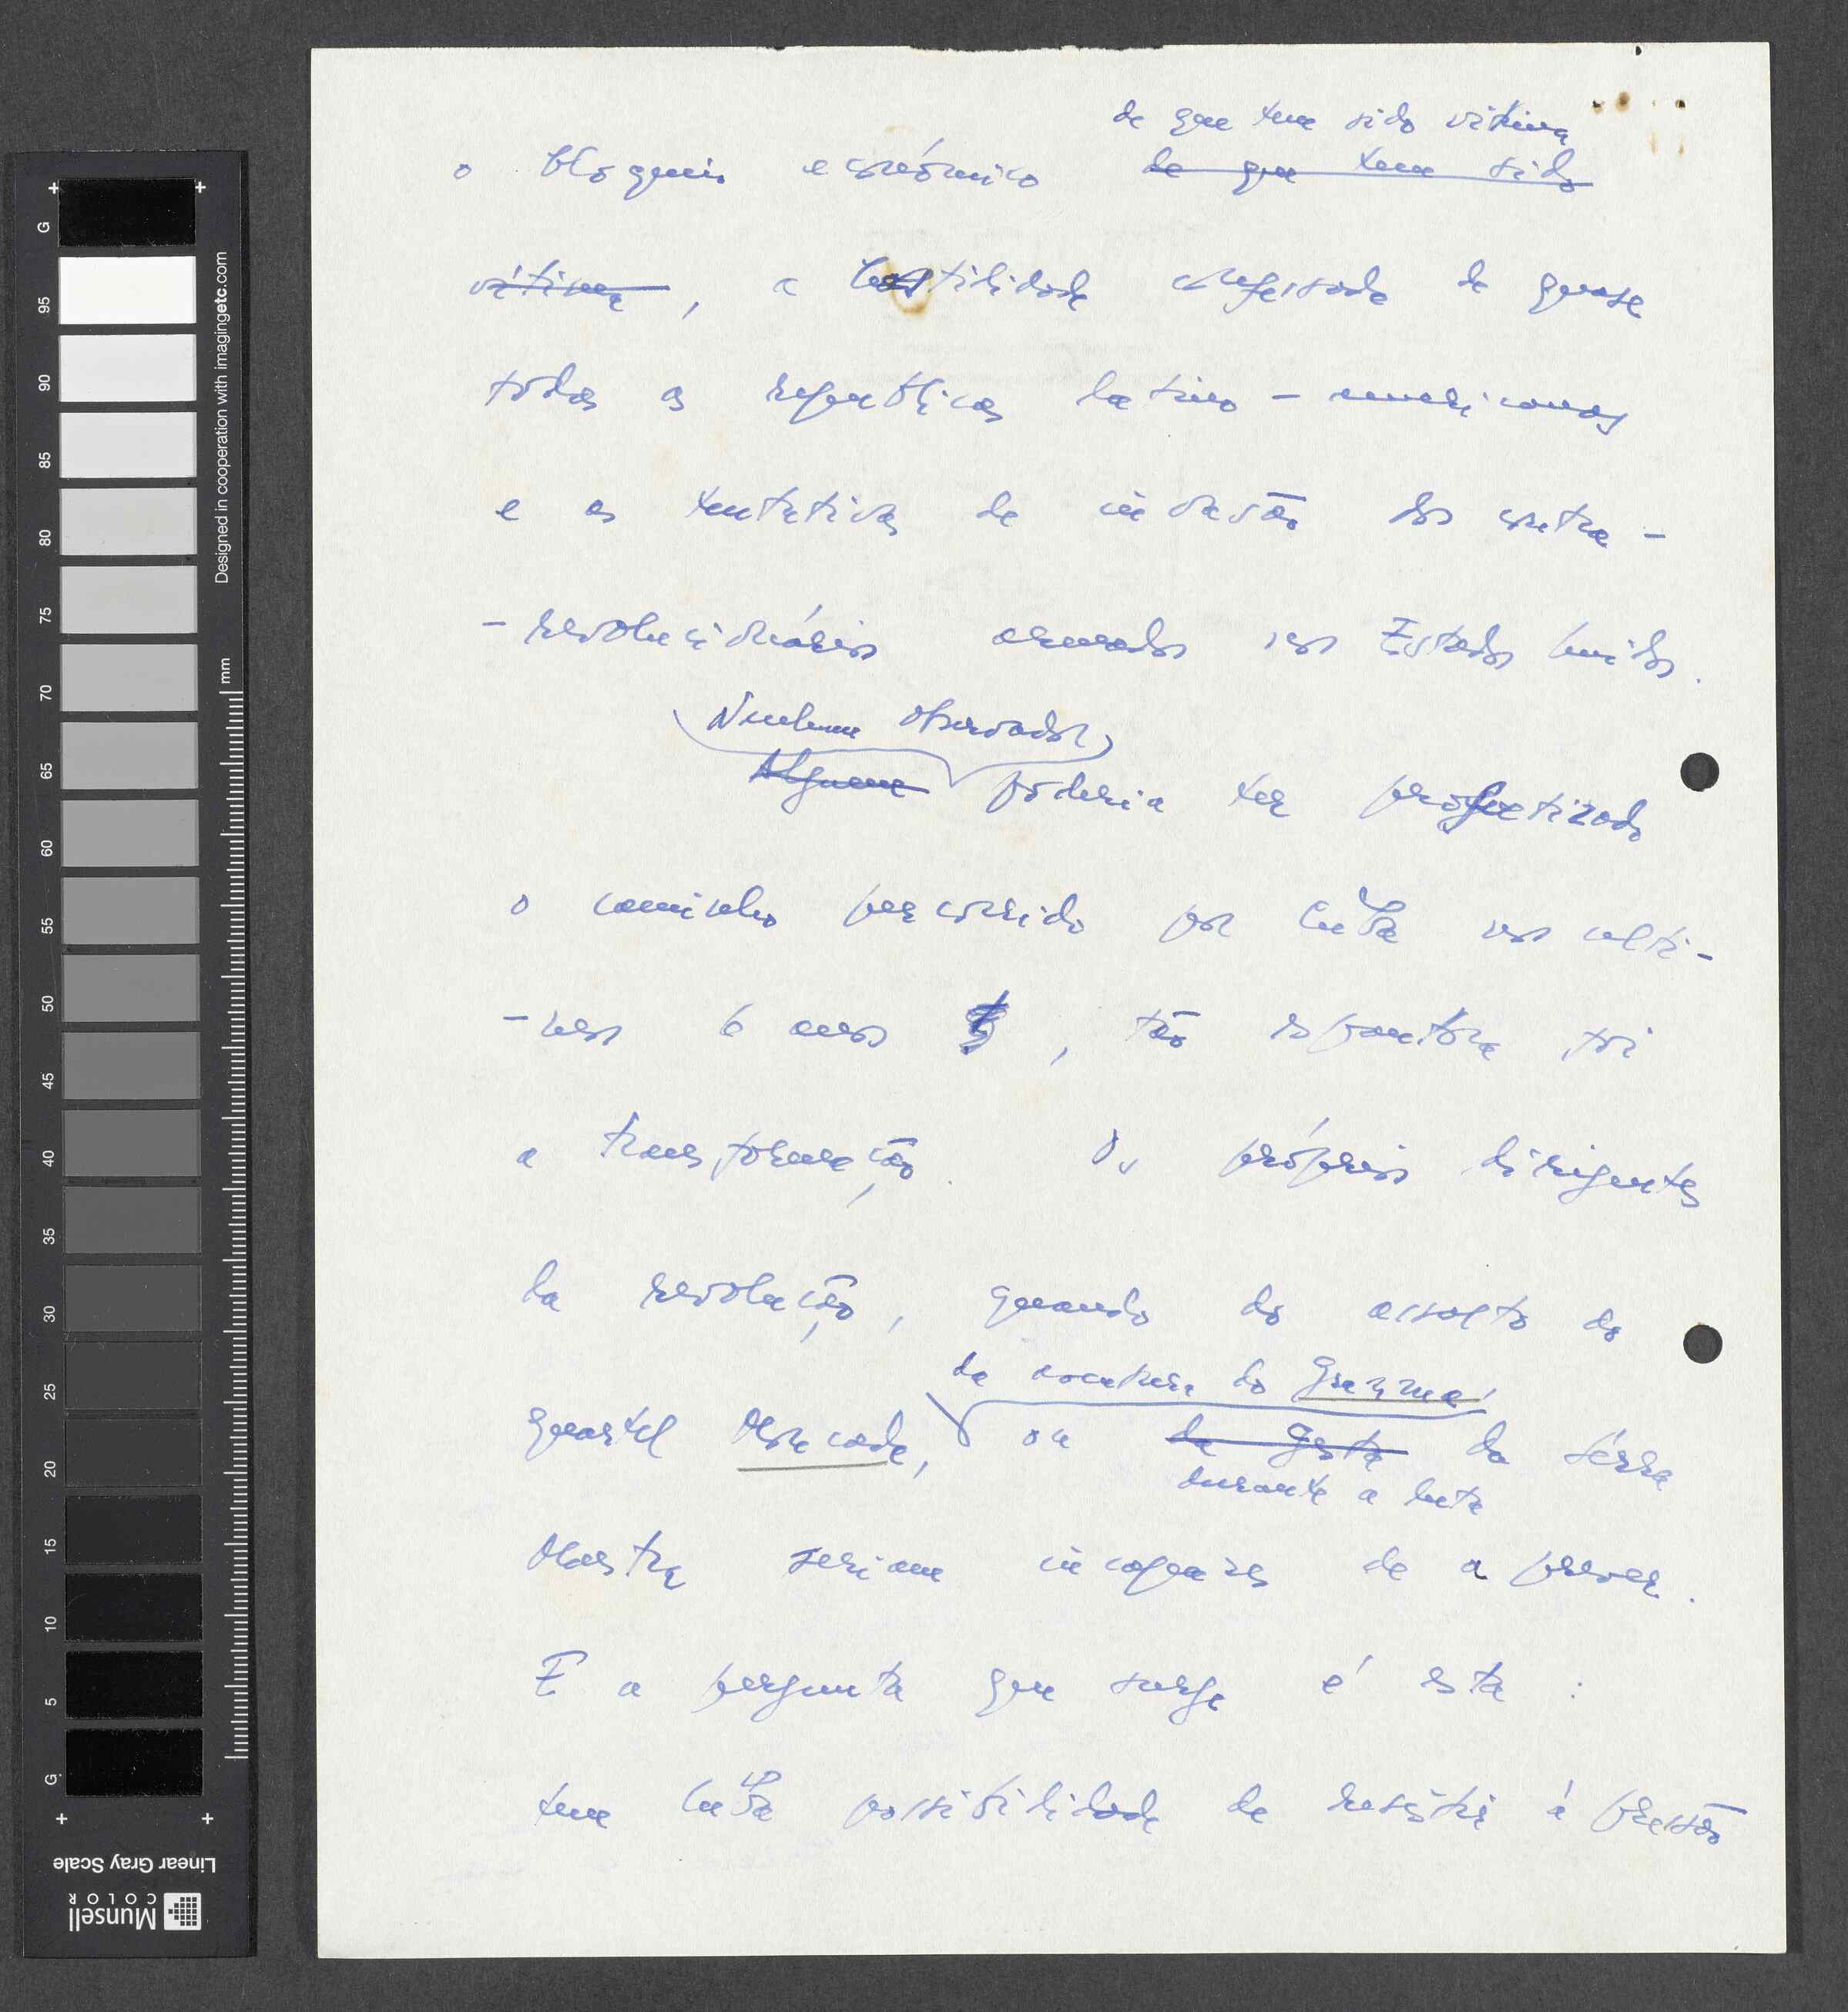 de que tem sido vítima
o bloqueio económico de que tem sido
vítima, a hostilidade confessada de quase
tôdas as republicas latino-americanas
e as tentativas de invasão dos contra-
-revolucionários armados nos Estados Unidos.
Nenhum observador
Alguem poderia ter profetizado
o caminho percorrido por Cuba nos ulti-
-mos 6 anos, tão espantosa foi
a transformação. Os próprios dirigentes
da revolução, quando do assalto ao
da do Granma
quartel Moncada, ou da gesta da sérra
durante a luta
Maestra seriam incapazes de a prever.
E a pergunta que surge é esta:
tem Cuba possibilidade de resistir à pressão
G 95 90 85 80 75 70 65 60 55 50 45 40 35 30 25 20 15 10 5 G
Designed in cooperation with imagingetc.com
mm
Linear Gray Scale
Munsell
COLOR